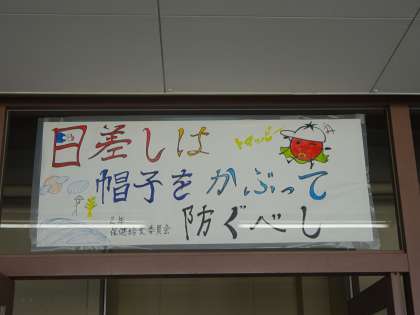 日差しは
帽子をかぶって
防ぐべし
2年
保健給食委員会